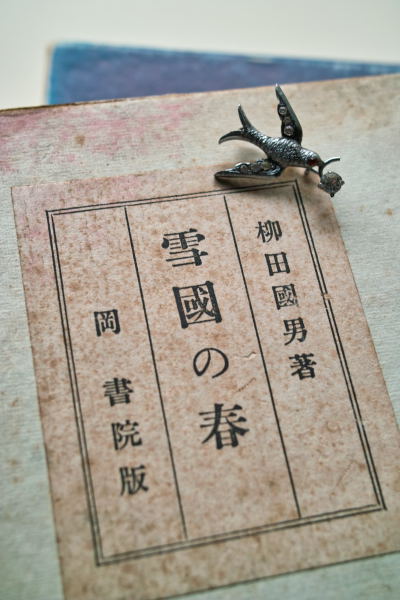 柳田國男著
雪國の春
岡書院版